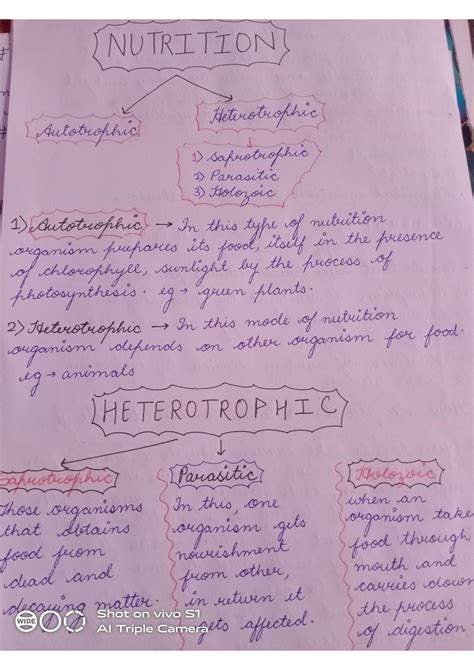 NUTRITION
Autotrophic
Heterotrophic
1) Saprotrophic
2) Parasitic
3) Holozoic
1) Autotrophic → In this type of nutrition
organism prepares its food, itself in the presence
of chlorophyll, sunlight by the process of
photosynthesis. eg → green plants.
2) Heterotrophic → In this mode of nutrition
organism depends on other organism for food.
eg → animals
HETEROTROPHIC
Saprotrophic
Those organisms
that obtains
food from
dead and
decaying matter.
Parasitic
In this, one
organism gets
nourishment
from other,
in return it
gets affected.
Holozoic
when an
organism take
food through
mouth and
carries down
the process
of digestion
WIDE
Shot on vivo S1
AI Triple Camera